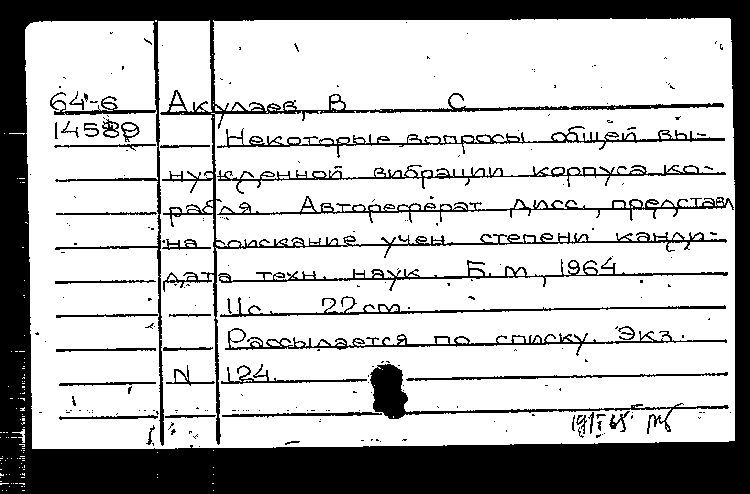 64-6 Акулаев, В С
14589 Некоторые вопросы общей вы-
нужденной вибрации корпуса ко-
рабля. Автореферат дисс., представл
на соискание учен. степени канди-
дата техн. наук. Б. м., 1964.
11с. 22см.
Рассылается по списку. Экз.
N 124.